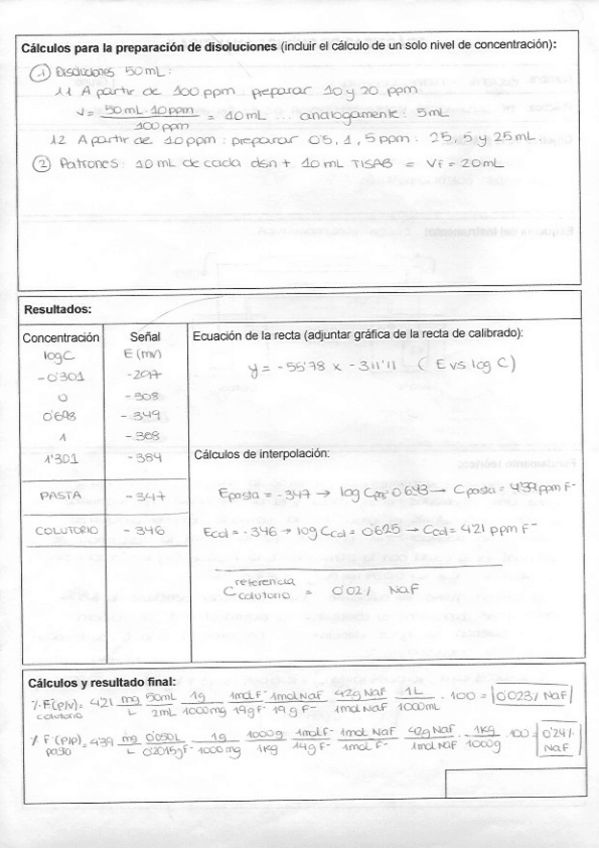 Cálculos para la preparación de disoluciones (incluir el cálculo de un solo nivel de concentración):
① Disoluciones 50mL:
1.1 A partir de 100 ppm : preparar 10 y 20 ppm
V = 50mL · 10ppm / 100 ppm = 10mL ... analogamente : 5mL
1.2 A partir de 10ppm : preparar 0'5, 1, 5 ppm : 2'5, 5 y 25mL.
② Patrones: 10 mL de cada dsn + 10 mL TISAB = Vf = 20mL
Resultados:
Concentración Señal Ecuación de la recta (adjuntar gráfica de la recta de calibrado):
logC E (mV)
-0'301
0 -308
0'698 -349
1 -368
1'301 -384
y = -55'78 x - 311'11 ( E vs log C )
Cálculos de interpolación:
PASTA -347
Epasta = -347 → log Cpas 0'643 → Cpasta = 4'39 ppm F⁻
COLUTORIO -346
Ecol = -346 → log Ccol = 0'625 → Ccol = 4'21 ppm F⁻
C referencia colutorio = 0'02% NaF
Cálculos y resultado final:
% F(P/V) colutorio = 4'21 mg/L 50mL/2mL 1g/1000mg 1molF⁻/19gF⁻ 1molNaF/19gF⁻ 42g NaF/1mol NaF 1L/1000mL · 100 = 0'023% NaF
% F (P/P) pasta = 4'39 mg/L 0'050L/0'2015gF⁻ 1g/1000mg 1000g/1kg 1molF⁻/19gF⁻ 1mol NaF/1mol F⁻ 42g NaF/1mol NaF · 1Kg/1000g · 100 = 0'24% NaF